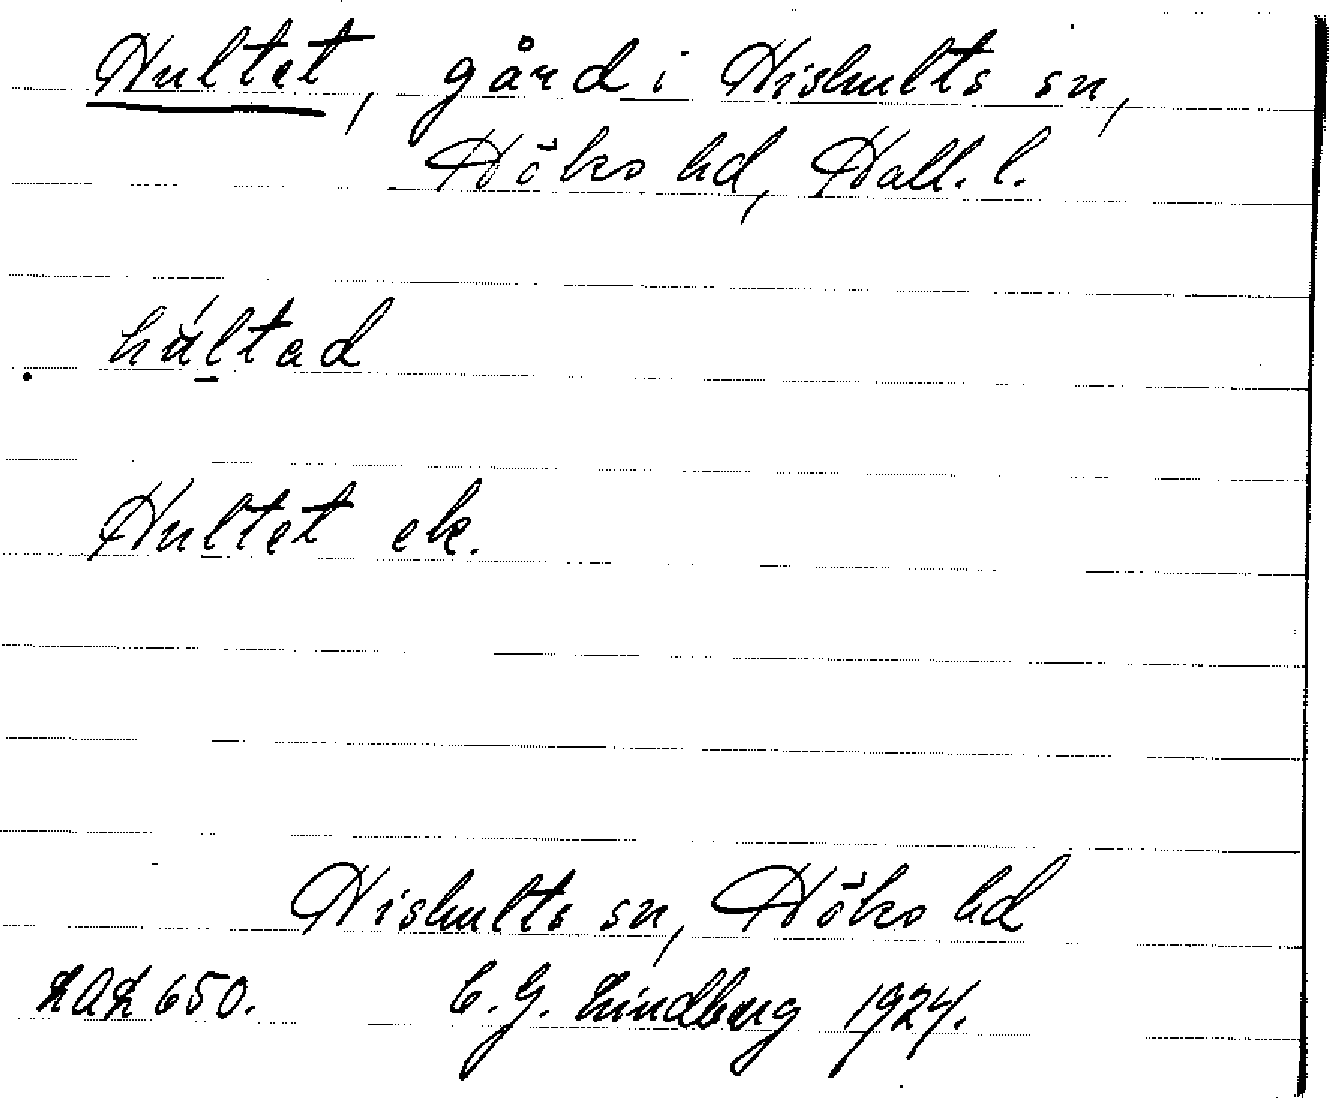 Hultet, gård i Hishults sn,
Höks hd, Hall. l.
húltad
Hultet ek.
Hishults sn, Höks hd
LAL 650. C. G. Lindberg 1924.